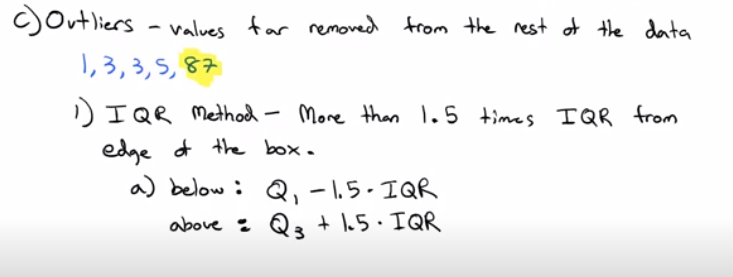 c) Outliers - values far removed from the rest of the data
1, 3, 3, 5, 87
1) IQR Method - More than 1.5 times IQR from
edge of the box.
a) below: Q₁ - 1.5 · IQR
above: Q₃ + 1.5 · IQR